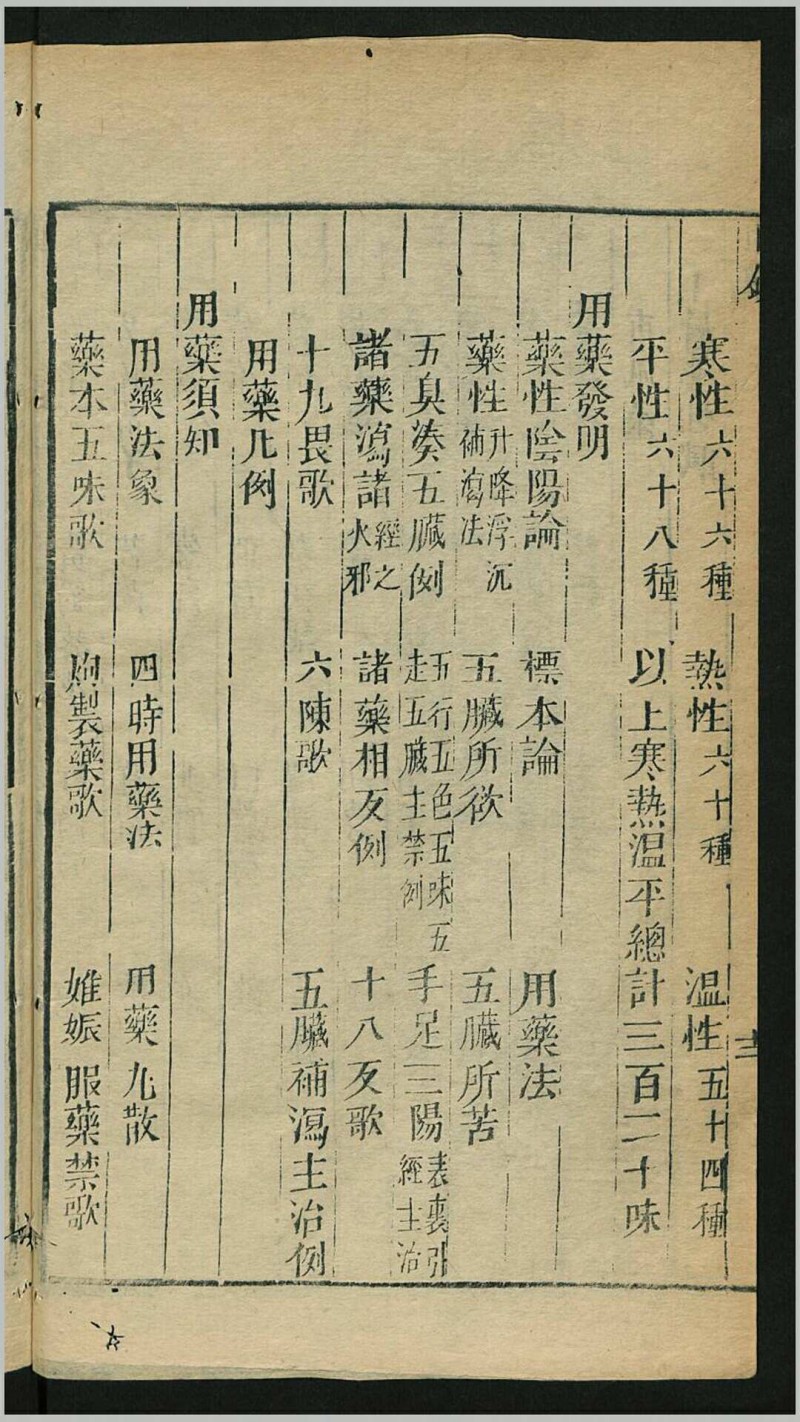 寒性六十六種　熱性六十種　温性五十四種
平性六十八種　以上寒熱温平總計三百二十味
用藥發明
藥性陰陽論　標本論　用藥法
藥性升降浮沉補瀉法　五臟所欲　五臟所苦
五臭湊五臟例　五行五色五味五走五臟主禁例　手足三陽表裏引經主治
諸藥瀉諸經之火邪　諸藥相反例　十八反歌
十九畏歌　六陳歌　五臟補瀉主治例
用藥凡例
用藥須知
用藥法象　四時用藥法　用藥丸散
藥本五味歌　炮製藥歌　妊娠服藥禁歌